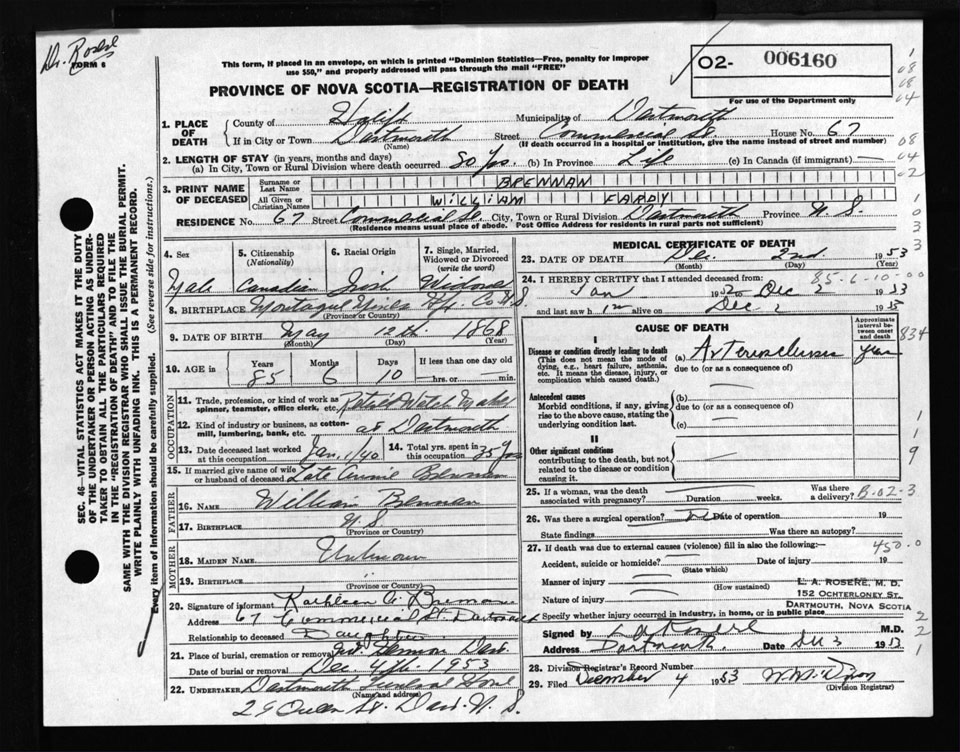 Dr. Rosere
FORM 6
This form, if placed in an envelope, on which is printed "Dominion Statistics—Free, penalty for improper
use $50," and properly addressed will pass through the mail "FREE"
O2- 006160
For use of the Department only
PROVINCE OF NOVA SCOTIA—REGISTRATION OF DEATH
1. PLACE OF DEATH
County of Halifx Municipality of Dartmouth
If in City or Town Dartmouth Street Commercial St. House No. 67
(Name) (If death occurred in a hospital or institution, give the name instead of street and number)
2. LENGTH OF STAY (in years, months and days)
(a) In City, Town or Rural Division where death occurred 80 yrs. (b) In Province Life (c) In Canada (if immigrant) —
3. PRINT NAME OF DECEASED
Surname or Last Name BRENNAN
All Given or Christian Names WILLIAM FARDY
RESIDENCE No. 67 Street Commercial St. City, Town or Rural Division Dartmouth Province N.S.
(Residence means usual place of abode. Post Office Address for residents in rural parts not sufficient)
4. Sex
Male
5. Citizenship (Nationality)
Canadian
6. Racial Origin
Irish
7. Single, Married, Widowed or Divorced (write the word)
Widowed
8. BIRTHPLACE Montague Mines Hfx. Co N.S.
(Province or Country)
9. DATE OF BIRTH May 12th 1868
(Month) (Day) (Year)
10. AGE in
Years 85 Months 6 Days 10
If less than one day old
hrs. or — min.
OCCUPATION
11. Trade, profession, or kind of work as spinner, teamster, office clerk, etc. Retired Watch Maker
12. Kind of industry or business, as cotton-mill, lumbering, bank, etc. at Dartmouth
13. Date deceased last worked at this occupation Jan. 1/40
14. Total yrs. spent in this occupation
15. If married give name of wife or husband of deceased Late Annie Brennan
FATHER
16. NAME William Brennan
17. BIRTHPLACE N.S.
(Province or Country)
MOTHER
18. MAIDEN NAME Unknown
19. BIRTHPLACE
(Province or Country)
20. Signature of informant Kathleen Brennan
Address 67 Commercial St. Dartmouth
Relationship to deceased Daughter
21. Place of burial, cremation or removal
Date of burial or removal Dec. 4th. 1953
22. UNDERTAKER Dartmouth Funeral Home
(Name and address)
29 Queen St. Dart. N.S.
MEDICAL CERTIFICATE OF DEATH
23. DATE OF DEATH Dec. 2nd. 1953
(Month) (Day) (Year)
24. I HEREBY CERTIFY that I attended deceased from: 85-6-10-00
Jan 1952 to Dec 2 1953
and last saw h im alive on Dec 2 19
CAUSE OF DEATH
Approximate interval between onset and death
834
I
Disease or condition directly leading to death (a) Arteriosclerosis years
(This does not mean the mode of dying, e.g., heart failure, asthenia, etc. It means the disease, injury, or complication which caused death.)
due to (or as a consequence of)
Antecedent causes
Morbid conditions, if any, giving rise to the above cause, stating the underlying condition last.
(b)
due to (or as a consequence of)
(c)
II
Other significant conditions
contributing to the death, but not related to the disease or condition causing it.
25. If a woman, was the death associated with pregnancy? — Duration weeks. Was there a delivery? B-02-3
26. Was there a surgical operation? no Date of operation 19
State findings Was there an autopsy?
27. If death was due to external causes (violence) fill in also the following:— 450-0
Accident, suicide or homicide? Date of injury 19
(State which)
Manner of injury
(How sustained)
Nature of injury
L. A. ROSERE, M. D.
152 OCHTERLONEY ST.
DARTMOUTH, NOVA SCOTIA
Specify whether injury occurred in industry, in home, or in public place
Signed by L A Rosere M.D.
Address Dartmouth. Date Dec 3 1953
28. Division Registrar's Record Number
29. Filed December 4 1953
(Division Registrar)
SEC. 46—VITAL STATISTICS ACT MAKES IT THE DUTY
OF THE UNDERTAKER OR PERSON ACTING AS UNDER-
TAKER TO OBTAIN ALL THE PARTICULARS REQUIRED
IN THE "REGISTRATION OF DEATH" AND TO FILE THE
SAME WITH THE DIVISION REGISTRAR WHO SHALL ISSUE THE BURIAL PERMIT.
WRITE PLAINLY WITH UNFADING INK. THIS IS A PERMANENT RECORD.
Every item of Information should be carefully supplied. (See reverse side for instructions.)